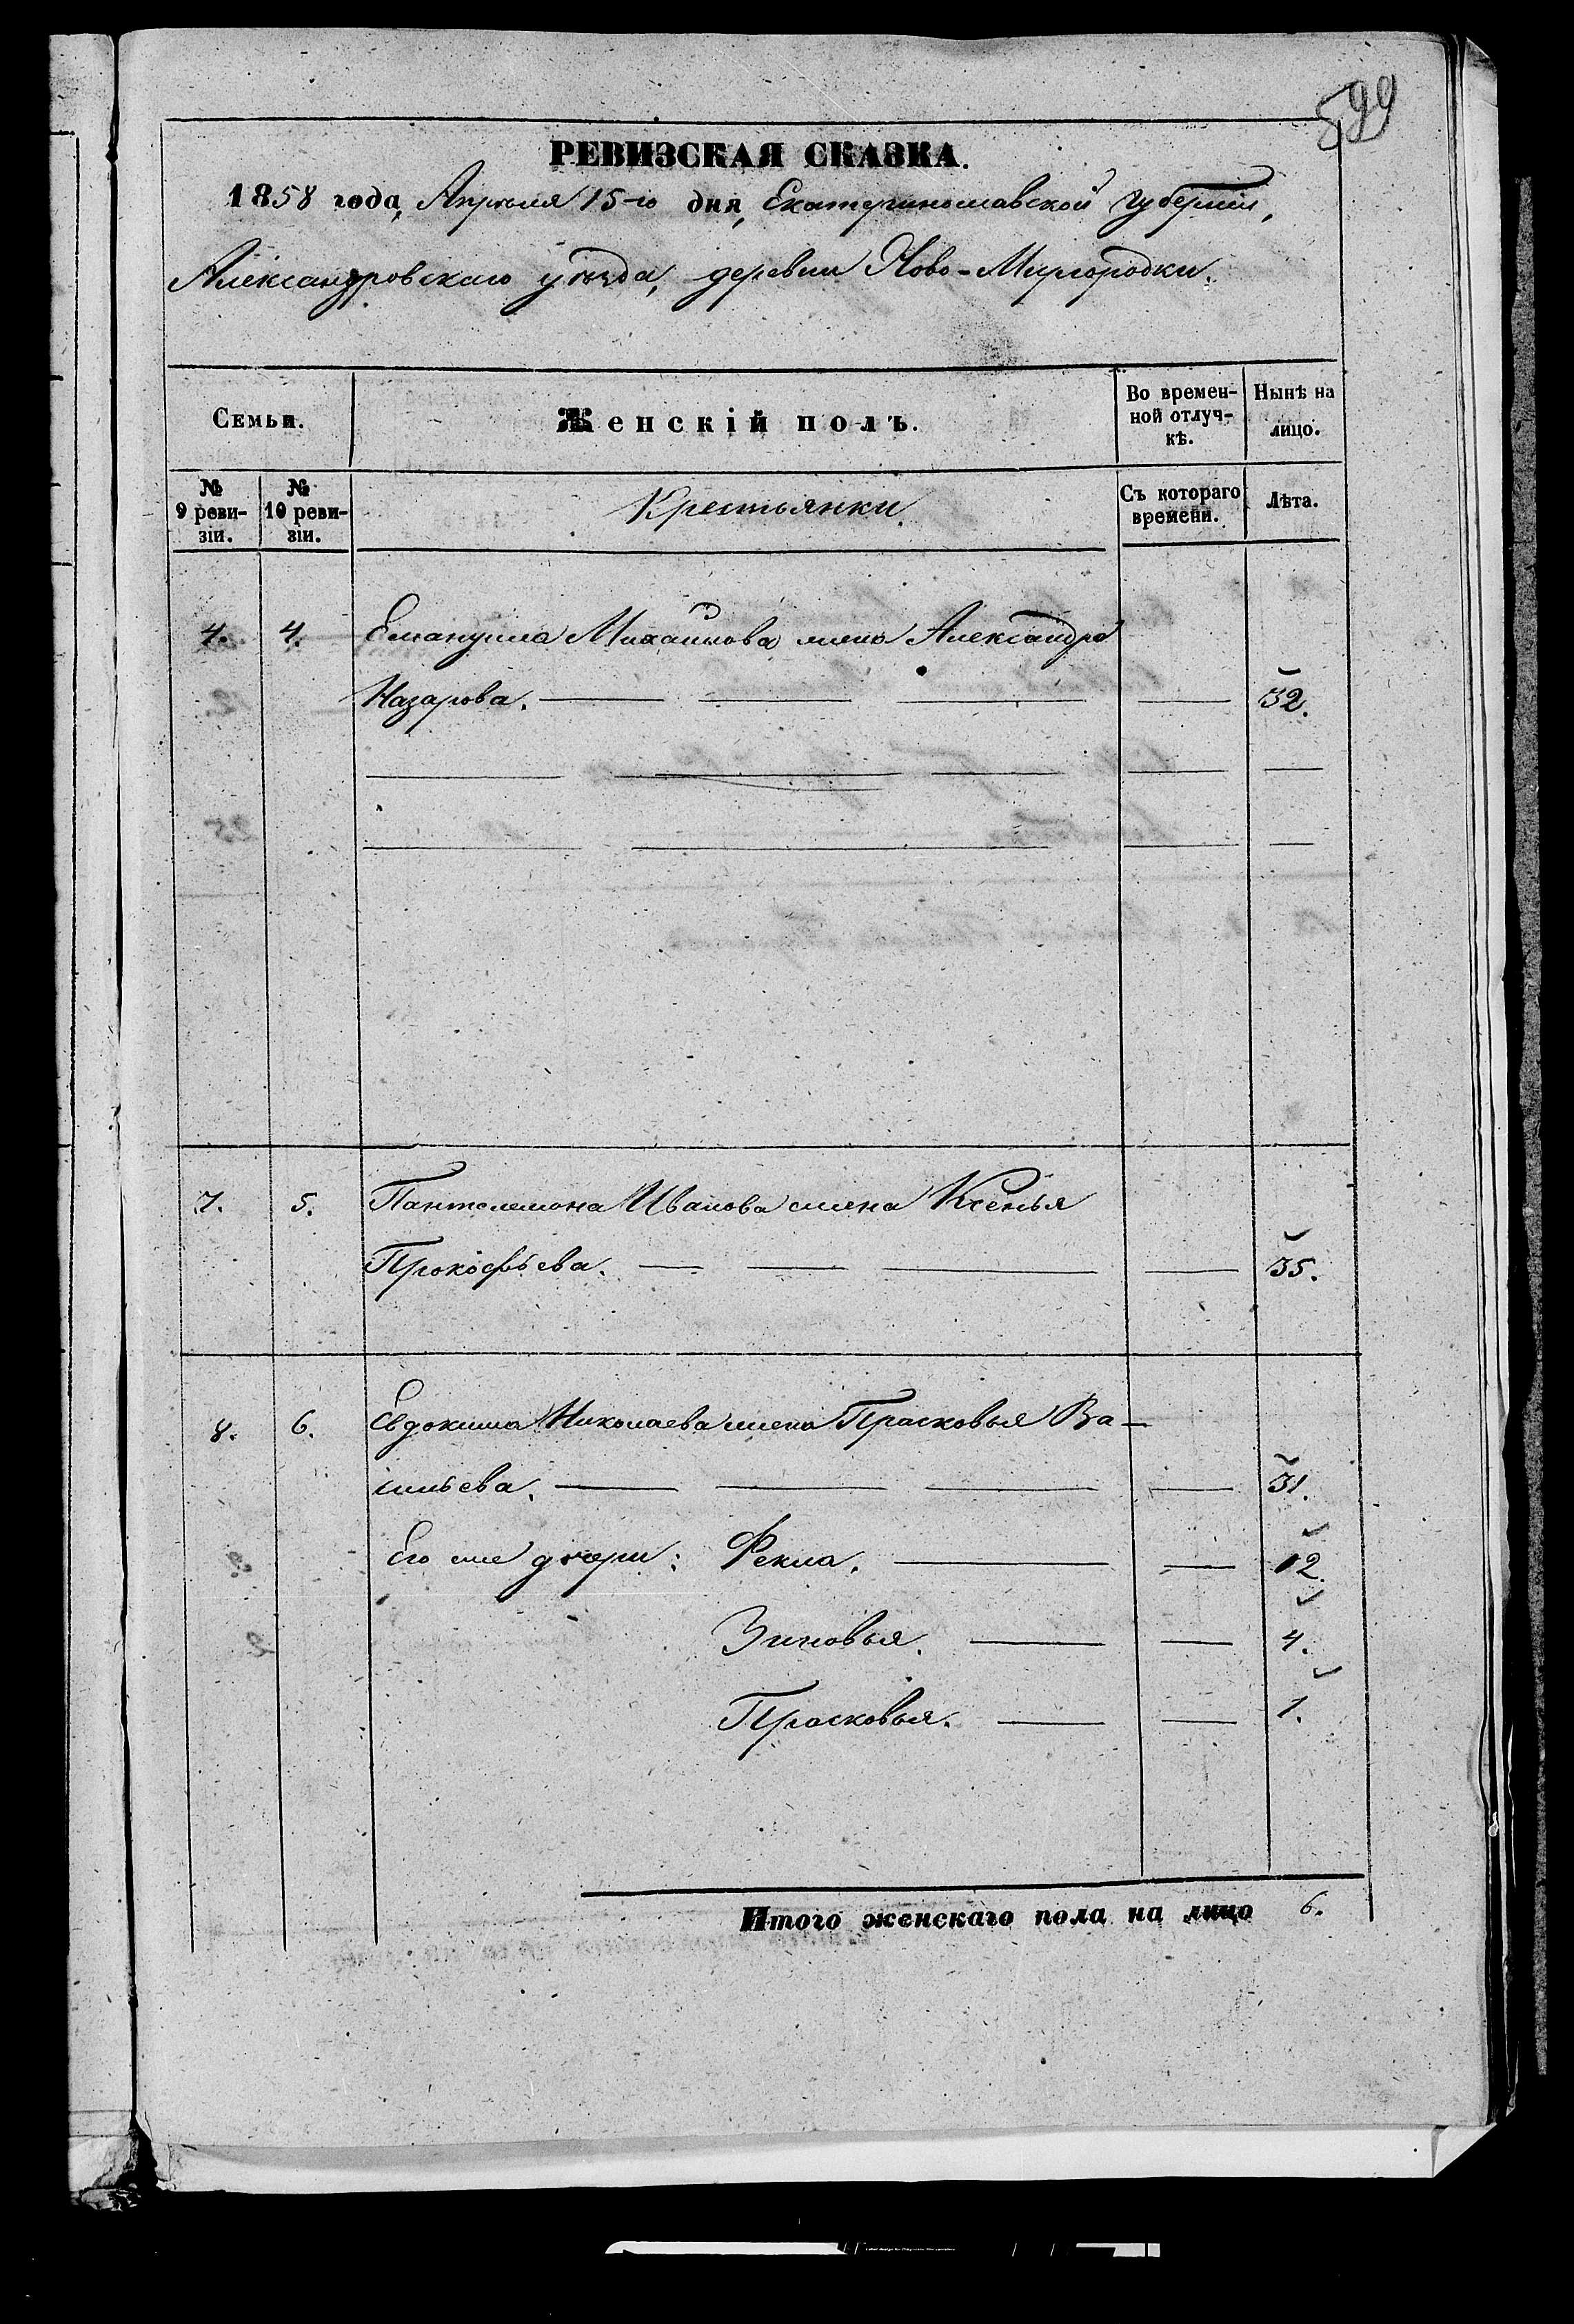 599
РЕВИЗСКАЯ СКАЗКА.
1858 года, Апрѣля 15-го дня, Екатеринославской Губерніи,
Александровскаго уѣзда, деревни Ново-Миргородки.
Семьи.
Женскій полъ.
Во времен-
ной отлуч-
кѣ.
Нынѣ на
лицо.
№
9 реви-
зіи.
№
10 реви-
зіи.
Крестьянки.
Съ котораго
времени.
Лѣта.
4. 4. Емануила Михайлова жена Александра
Назарова. 32.
7. 5. Пантелемона Иванова жена Ксенья
Прокофьева. 35.
8. 6. Евдокима Николаева жена Прасковья Ва-
сильева. 31.
Его же дочери: Фекла. 12.
Зиновья. 4.
Прасковья. 1.
Итого женскаго пола на лицо 6.